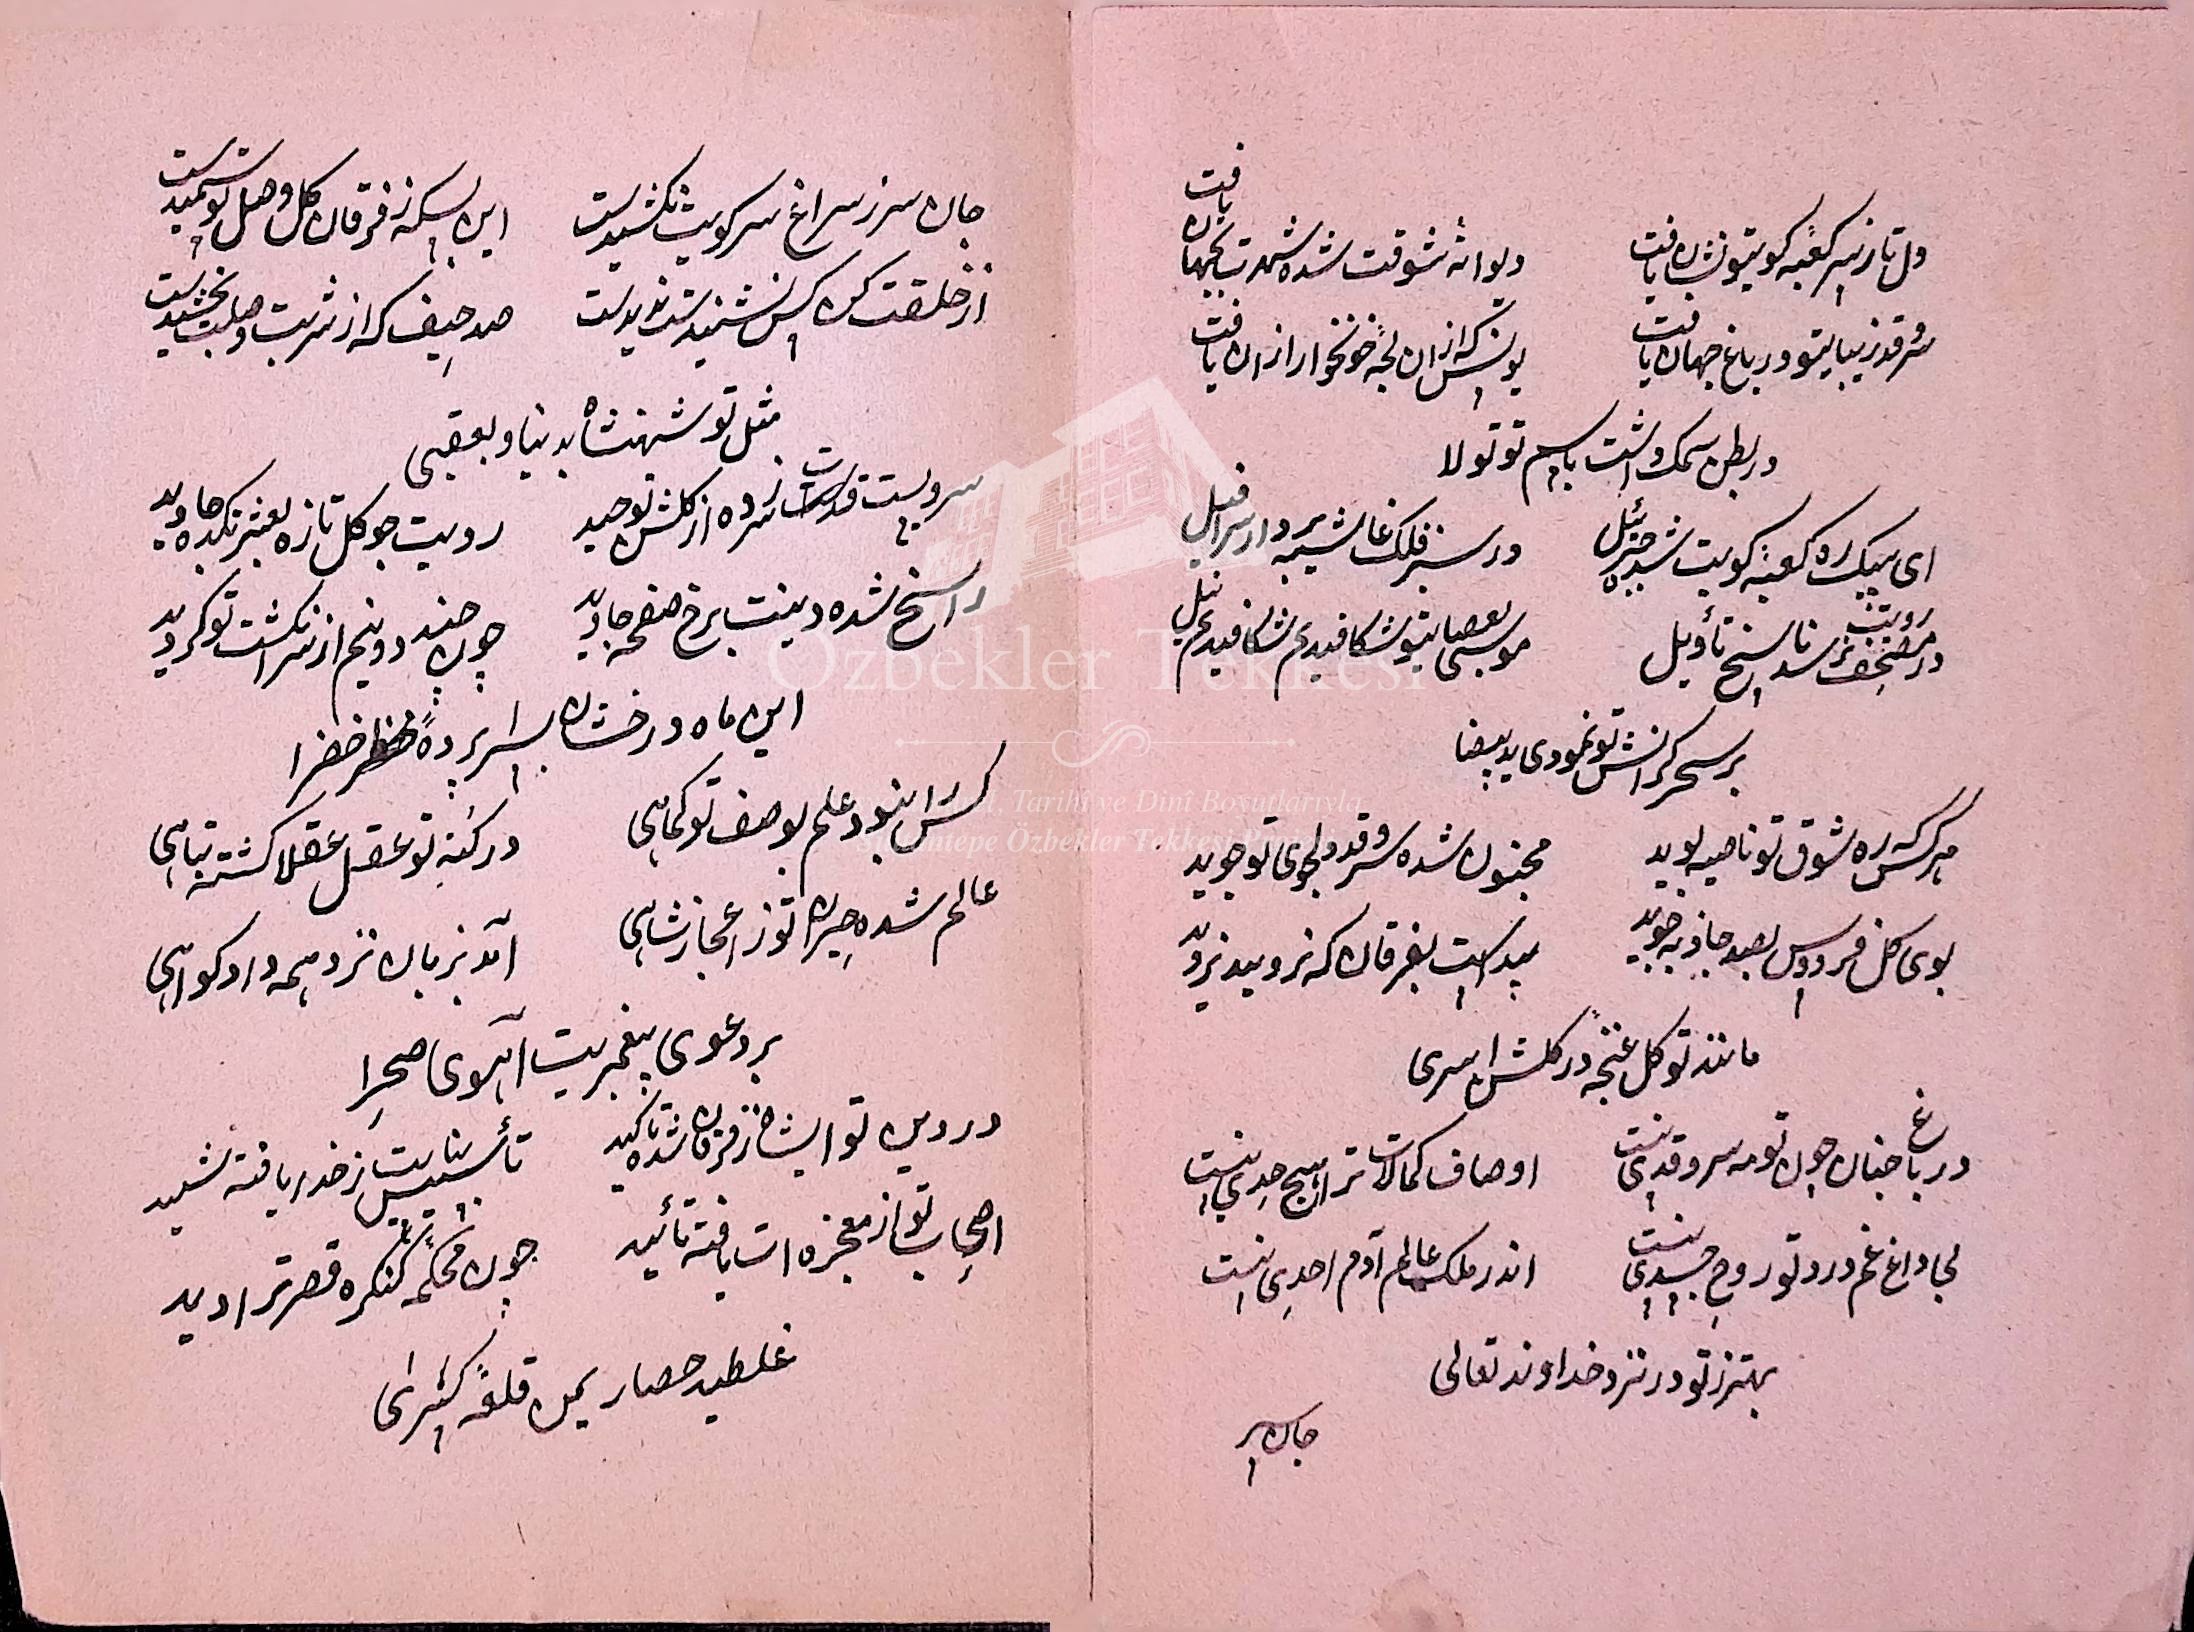 دل تا ز سر کعبه کویتو نشان یافت دیوانه شوقت شده شهرت بجهان یافت
سرو قد زیبایتو در باغ جهان یافت یونس که ازان لجه خونخوار ازان یافت
در بطن سمک داشت باسم تو تولا
ای پیک ره کعبه کویت شده جبرئیل در سبز فلک غاشیه بردار سرافیل
در مصحف رویت نرسد ناسخ تأویل موسی بعصایتو شکافید
بر سحر کرانش تو نمودی ید بیضا
هر کس که ره شوق تو ناصیه بوید مجنون شده سرو قد دلجوی تو جوید
بوی کل فردوس بصد جاذبه جوید پیداست بفرقان که نروید
مانند تو کل غنچه در کلشن اسری
در باغ جنان چون تو مه سرو قدی نیست اوصاف کمالات ترا هیچ حدی نیست
بی داغ غم درد تو روح جسدی نیست اندر ملک عالم آدم احدی نیست
بهتر ز تو در نزد خداوند تعالی
جان سر
جان سر ز سراغ سر کویت نکشیدست این بسکه ز فرقان کل وصل تو شمیدست
از خلقت کس نشنیدست ندیدست صد حیف که از شربت وصلت نچشیدست
مثل تو شهنشاه بدنیا و بعقبی
سرویست قدت سر زده از کلشن توحید رویت چو کل تازه بعنبر نکده جاوید
راسخ شده دینت برخ صفحه جاوید چون دو نیم از سر انکشت تو کردید
این ماه درخشان بسراپرده خضرا
کس را نبود علم بوصف تو کماهی در کنه تو عقل عقلا کشته تباهی
عالم شده حیران تو ز اعجاز شاهی آمد بزبان نزد همه داد کواهی
بر دعوی پیغمبریت آهوی صحرا
در دین تو ایشان ز فرقان شده تاکید تأسیس بنایت ز خدا یافته تشیید
اصحاب تو از معجزه ات یافته تأئید چون محکمه کنکره قصر ترا دید
غلطید حصار یمن قلعه کسرای